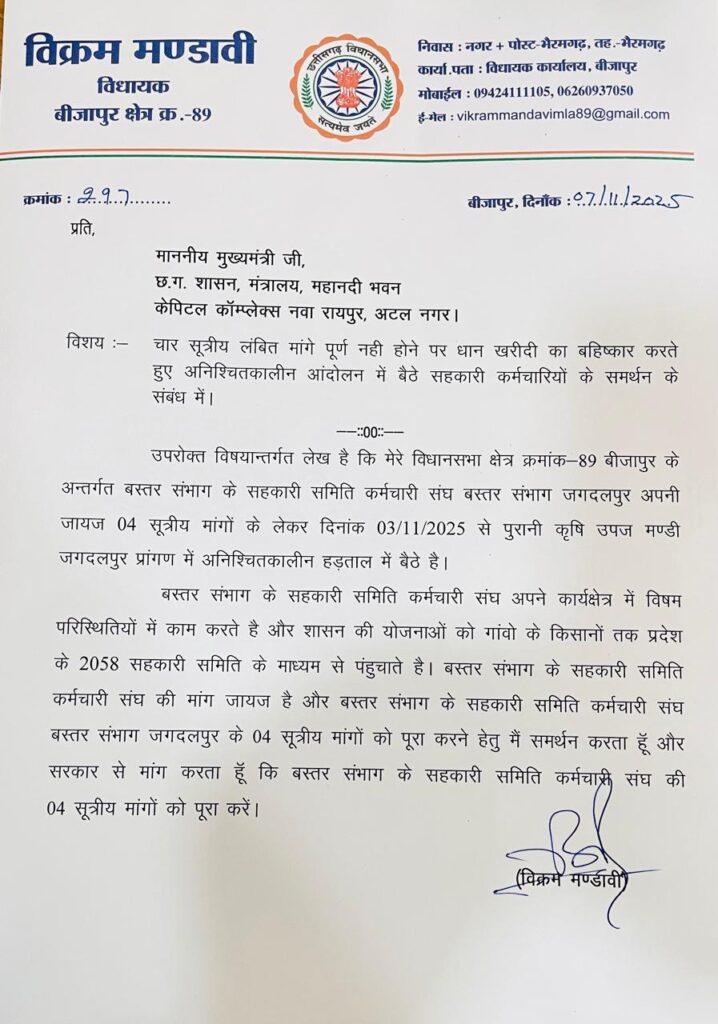 विक्रम मण्डावी
विधायक
बीजापुर क्षेत्र क्र.-89
छत्तीसगढ़ विधानसभा
सत्यमेव जयते
निवास : नगर + पोस्ट-भैरमगढ़, तह.-भैरमगढ़
कार्या.पता : विधायक कार्यालय, बीजापुर
मोबाईल : 09424111105, 06260937050
ई-मेल : vikrammandavimla89@gmail.com
क्रमांक : 297
बीजापुर, दिनाँक : 07/11/2025
प्रति,
माननीय मुख्यमंत्री जी,
छ.ग. शासन, मंत्रालय, महानदी भवन
केपिटल कॉम्प्लेक्स नवा रायपुर, अटल नगर।
विशय :– चार सूत्रीय लंबित मांगे पूर्ण नही होने पर धान खरीदी का बहिष्कार करते
हुए अनिश्चितकालीन आंदोलन में बैठे सहकारी कर्मचारियों के समर्थन के
संबंध में।
––::00::––
उपरोक्त विषयान्तर्गत लेख है कि मेरे विधानसभा क्षेत्र क्रमांक–89 बीजापुर के
अन्तर्गत बस्तर संभाग के सहकारी समिति कर्मचारी संघ बस्तर संभाग जगदलपुर अपनी
जायज 04 सूत्रीय मांगों के लेकर दिनांक 03/11/2025 से पुरानी कृषि उपज मण्डी
जगदलपुर प्रांगण में अनिश्चितकालीन हड़ताल में बैठे है।
बस्तर संभाग के सहकारी समिति कर्मचारी संघ अपने कार्यक्षेत्र में विषम
परिस्थितियों में काम करते है और शासन की योजनाओं को गांवो के किसानों तक प्रदेश
के 2058 सहकारी समिति के माध्यम से पंहुचाते है। बस्तर संभाग के सहकारी समिति
कर्मचारी संघ की मांग जायज है और बस्तर संभाग के सहकारी समिति कर्मचारी संघ
बस्तर संभाग जगदलपुर के 04 सूत्रीय मांगों को पूरा करने हेतु मैं समर्थन करता हूँ और
सरकार से मांग करता हूँ कि बस्तर संभाग के सहकारी समिति कर्मचारी संघ की
04 सूत्रीय मांगों को पूरा करें।
(विक्रम मण्डावी)